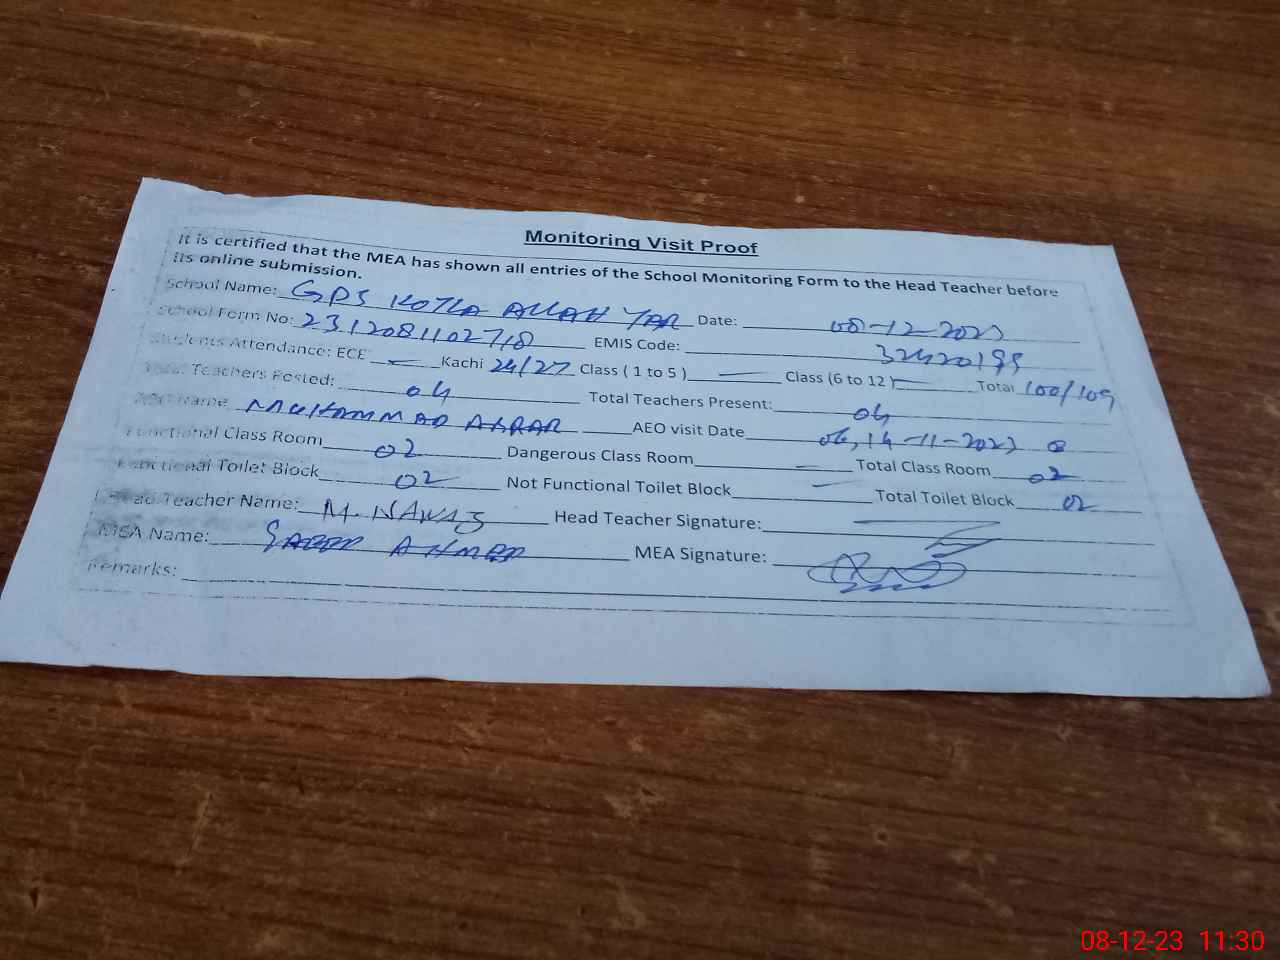 Monitoring Visit Proof
It is certified that the MEA has shown all entries of the School Monitoring Form to the Head Teacher before
its online submission.
School Name: GPS KOTLA ALLAH YAR Date: 08-12-2023
School Form No: 2312081102718 EMIS Code: 32420199
Students Attendance: ECE — Kachi 24/27 Class ( 1 to 5 ) — Class (6 to 12 ) — Total 100/109
Total Teachers Posted: 04 Total Teachers Present: 04
AEO Name MUHAMMAD ABRAR AEO visit Date 06, 14-11-2023
Functional Class Room 02 Dangerous Class Room — Total Class Room 02
Functional Toilet Block 02 Not Functional Toilet Block — Total Toilet Block 02
Head Teacher Name: M. NAWAZ Head Teacher Signature:
MEA Name: AHMED MEA Signature:
Remarks:
08-12-23 11:30